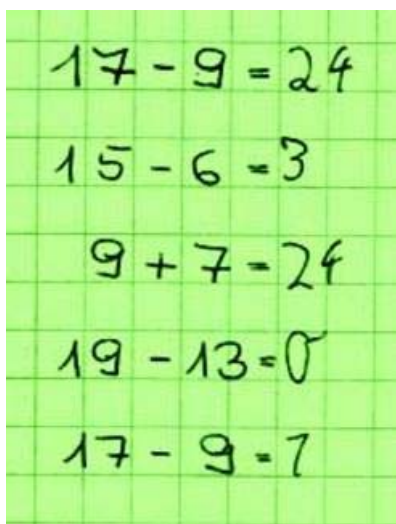 17 - 9 = 24
15 - 6 = 3
9 + 7 = 24
19 - 13 = 0
17 - 9 = 7